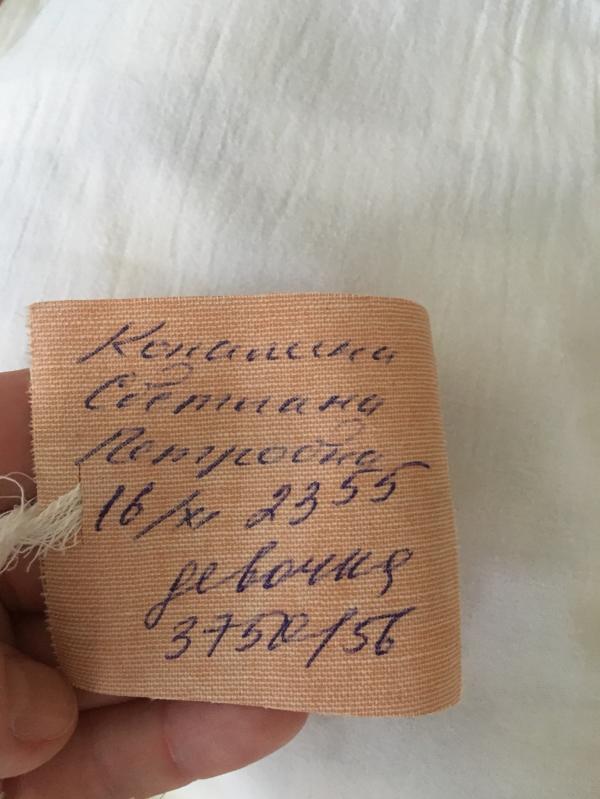 Коналина
Светлана
Петровна
16/XI 23⁵⁵
девочка
3750/56